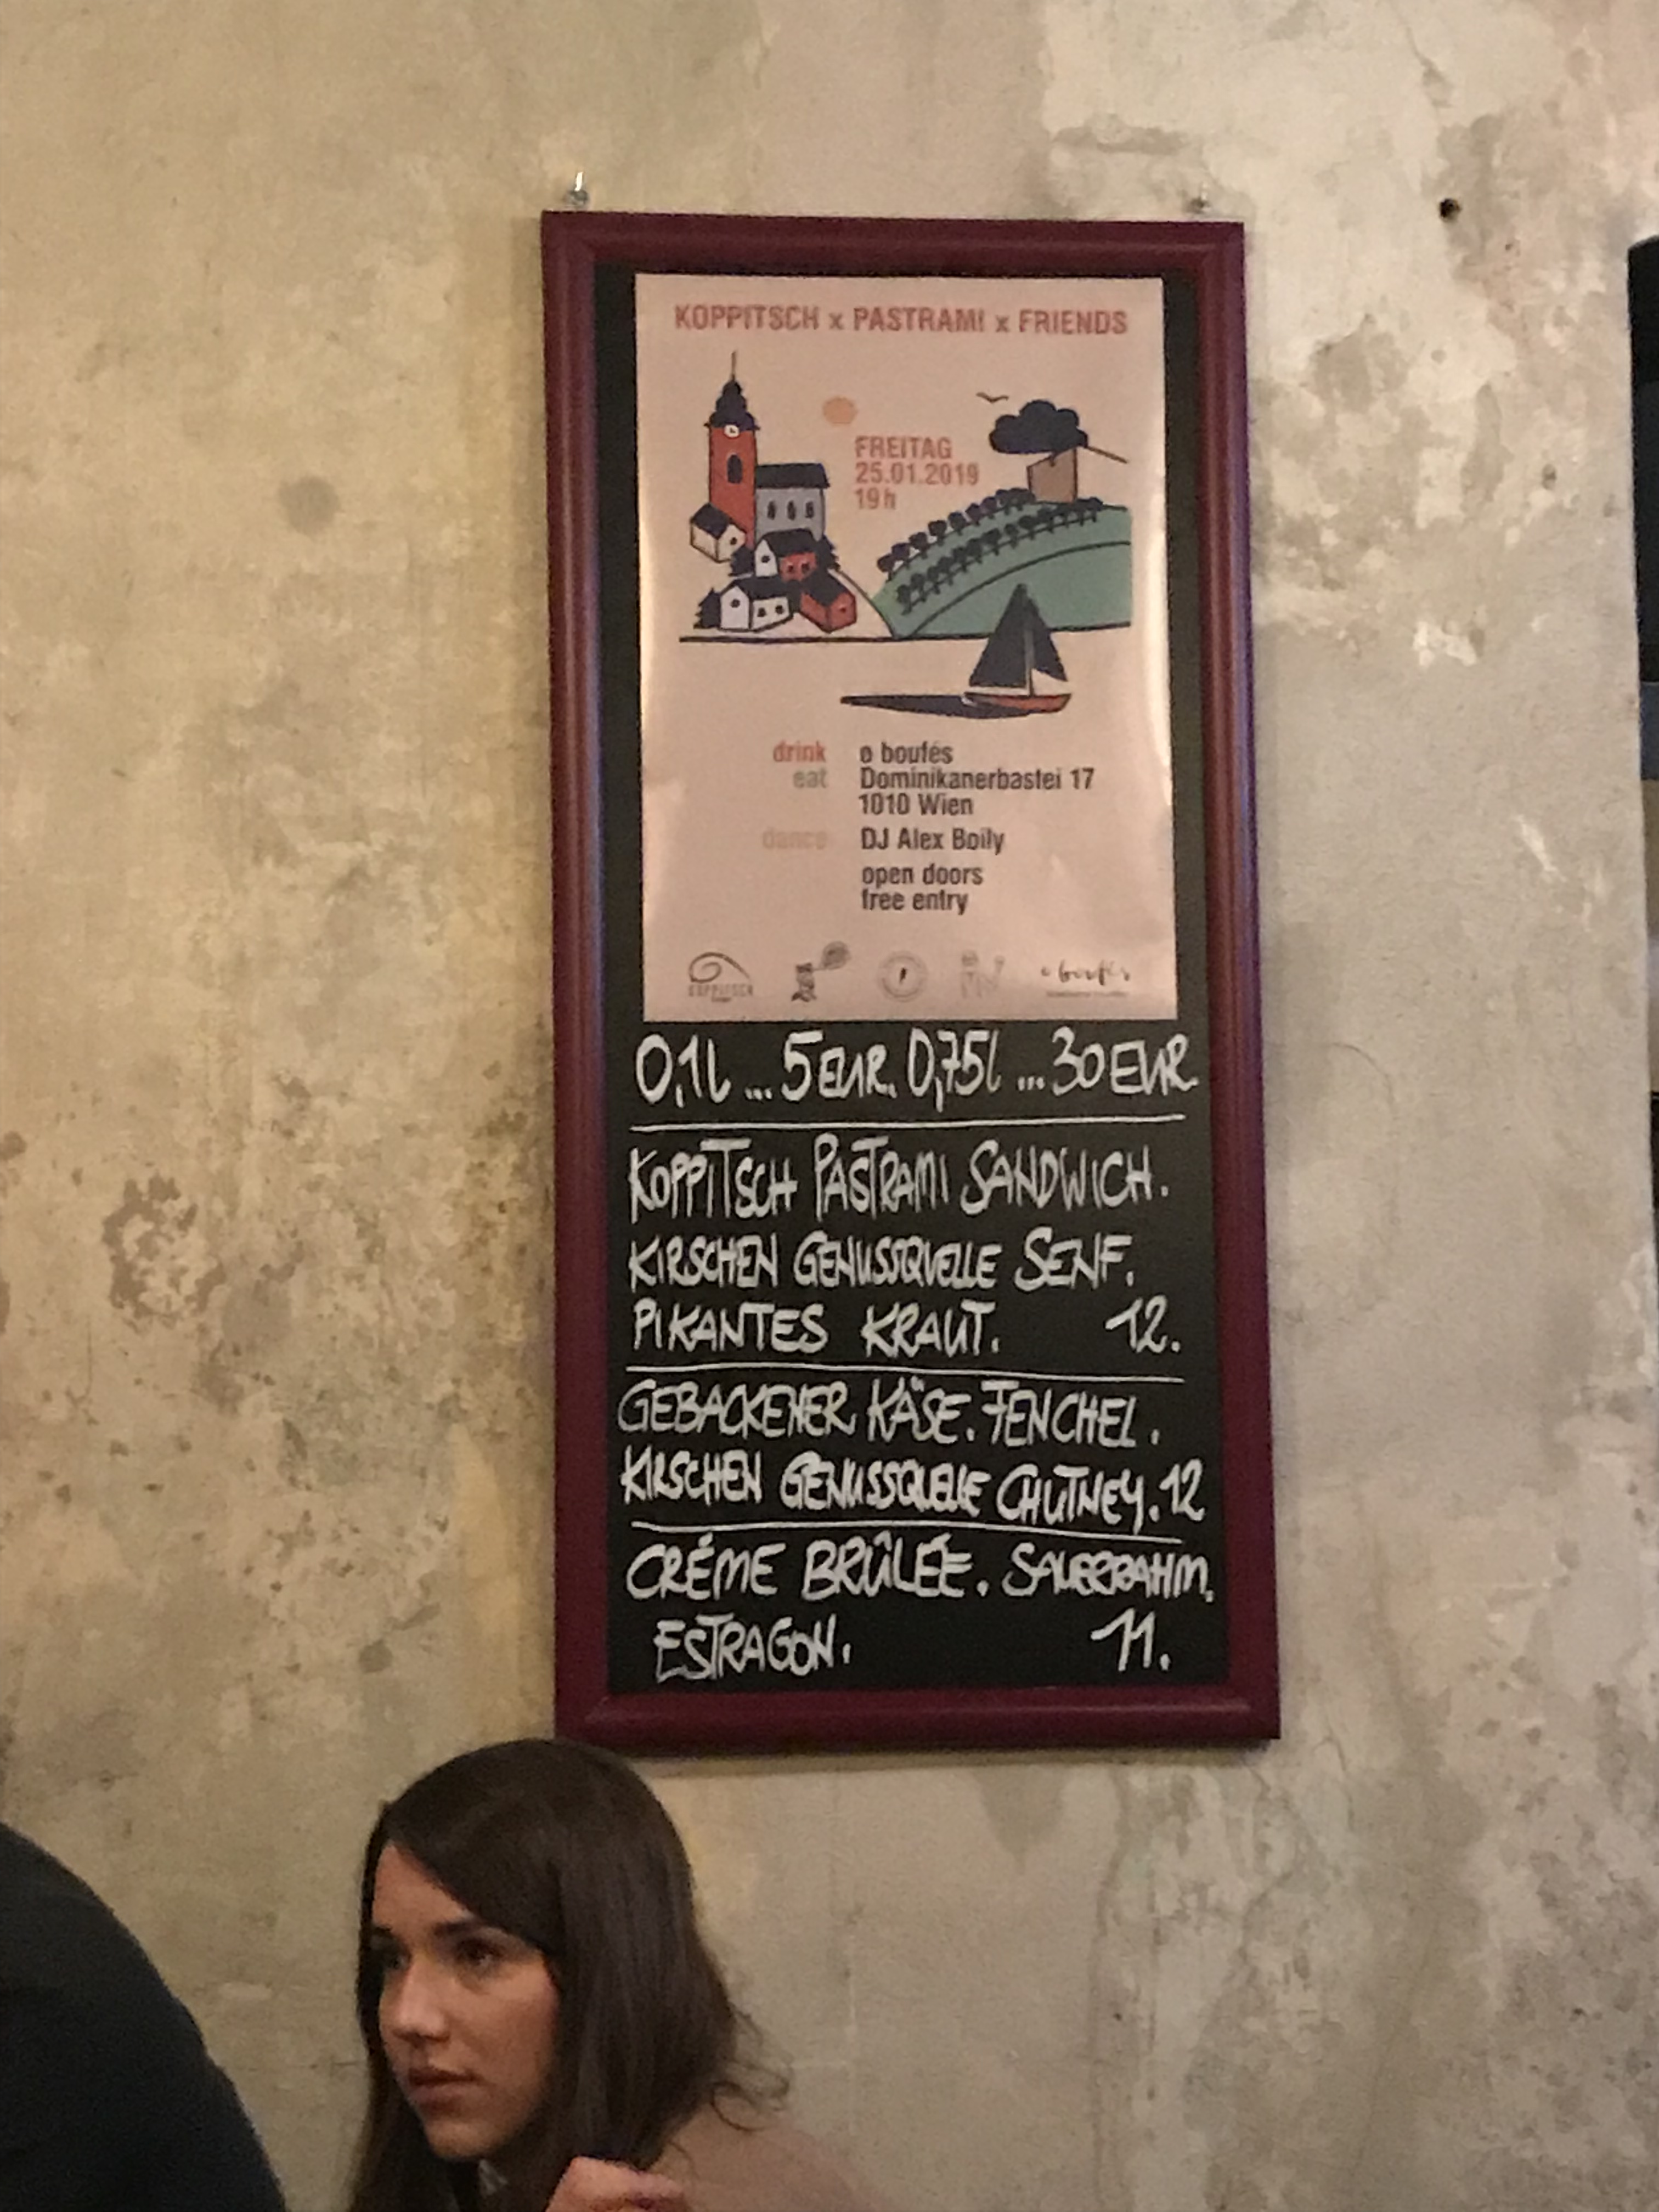 KOPPITSCH x PASTRAMI x FRIENDS
FREITAG
25.01.2019
19h
drink ø boufés
eat Dominikanerbastei 17
1010 Wien
dance DJ Alex Boily
open doors
free entry
KOPPITSCH
0,1l ... 5 EUR. 0,75l ... 30 EUR
KOPPITSCH PASTRAMI SANDWICH.
KIRSCHEN GENUSSQUELLE SENF.
PIKANTES KRAUT. 12.
GEBACKENER KÄSE. FENCHEL.
KIRSCHEN GENUSSQUELLE CHUTNEY. 12
CRÉME BRÛLÉE. SAUERRAHM.
ESTRAGON. 11.